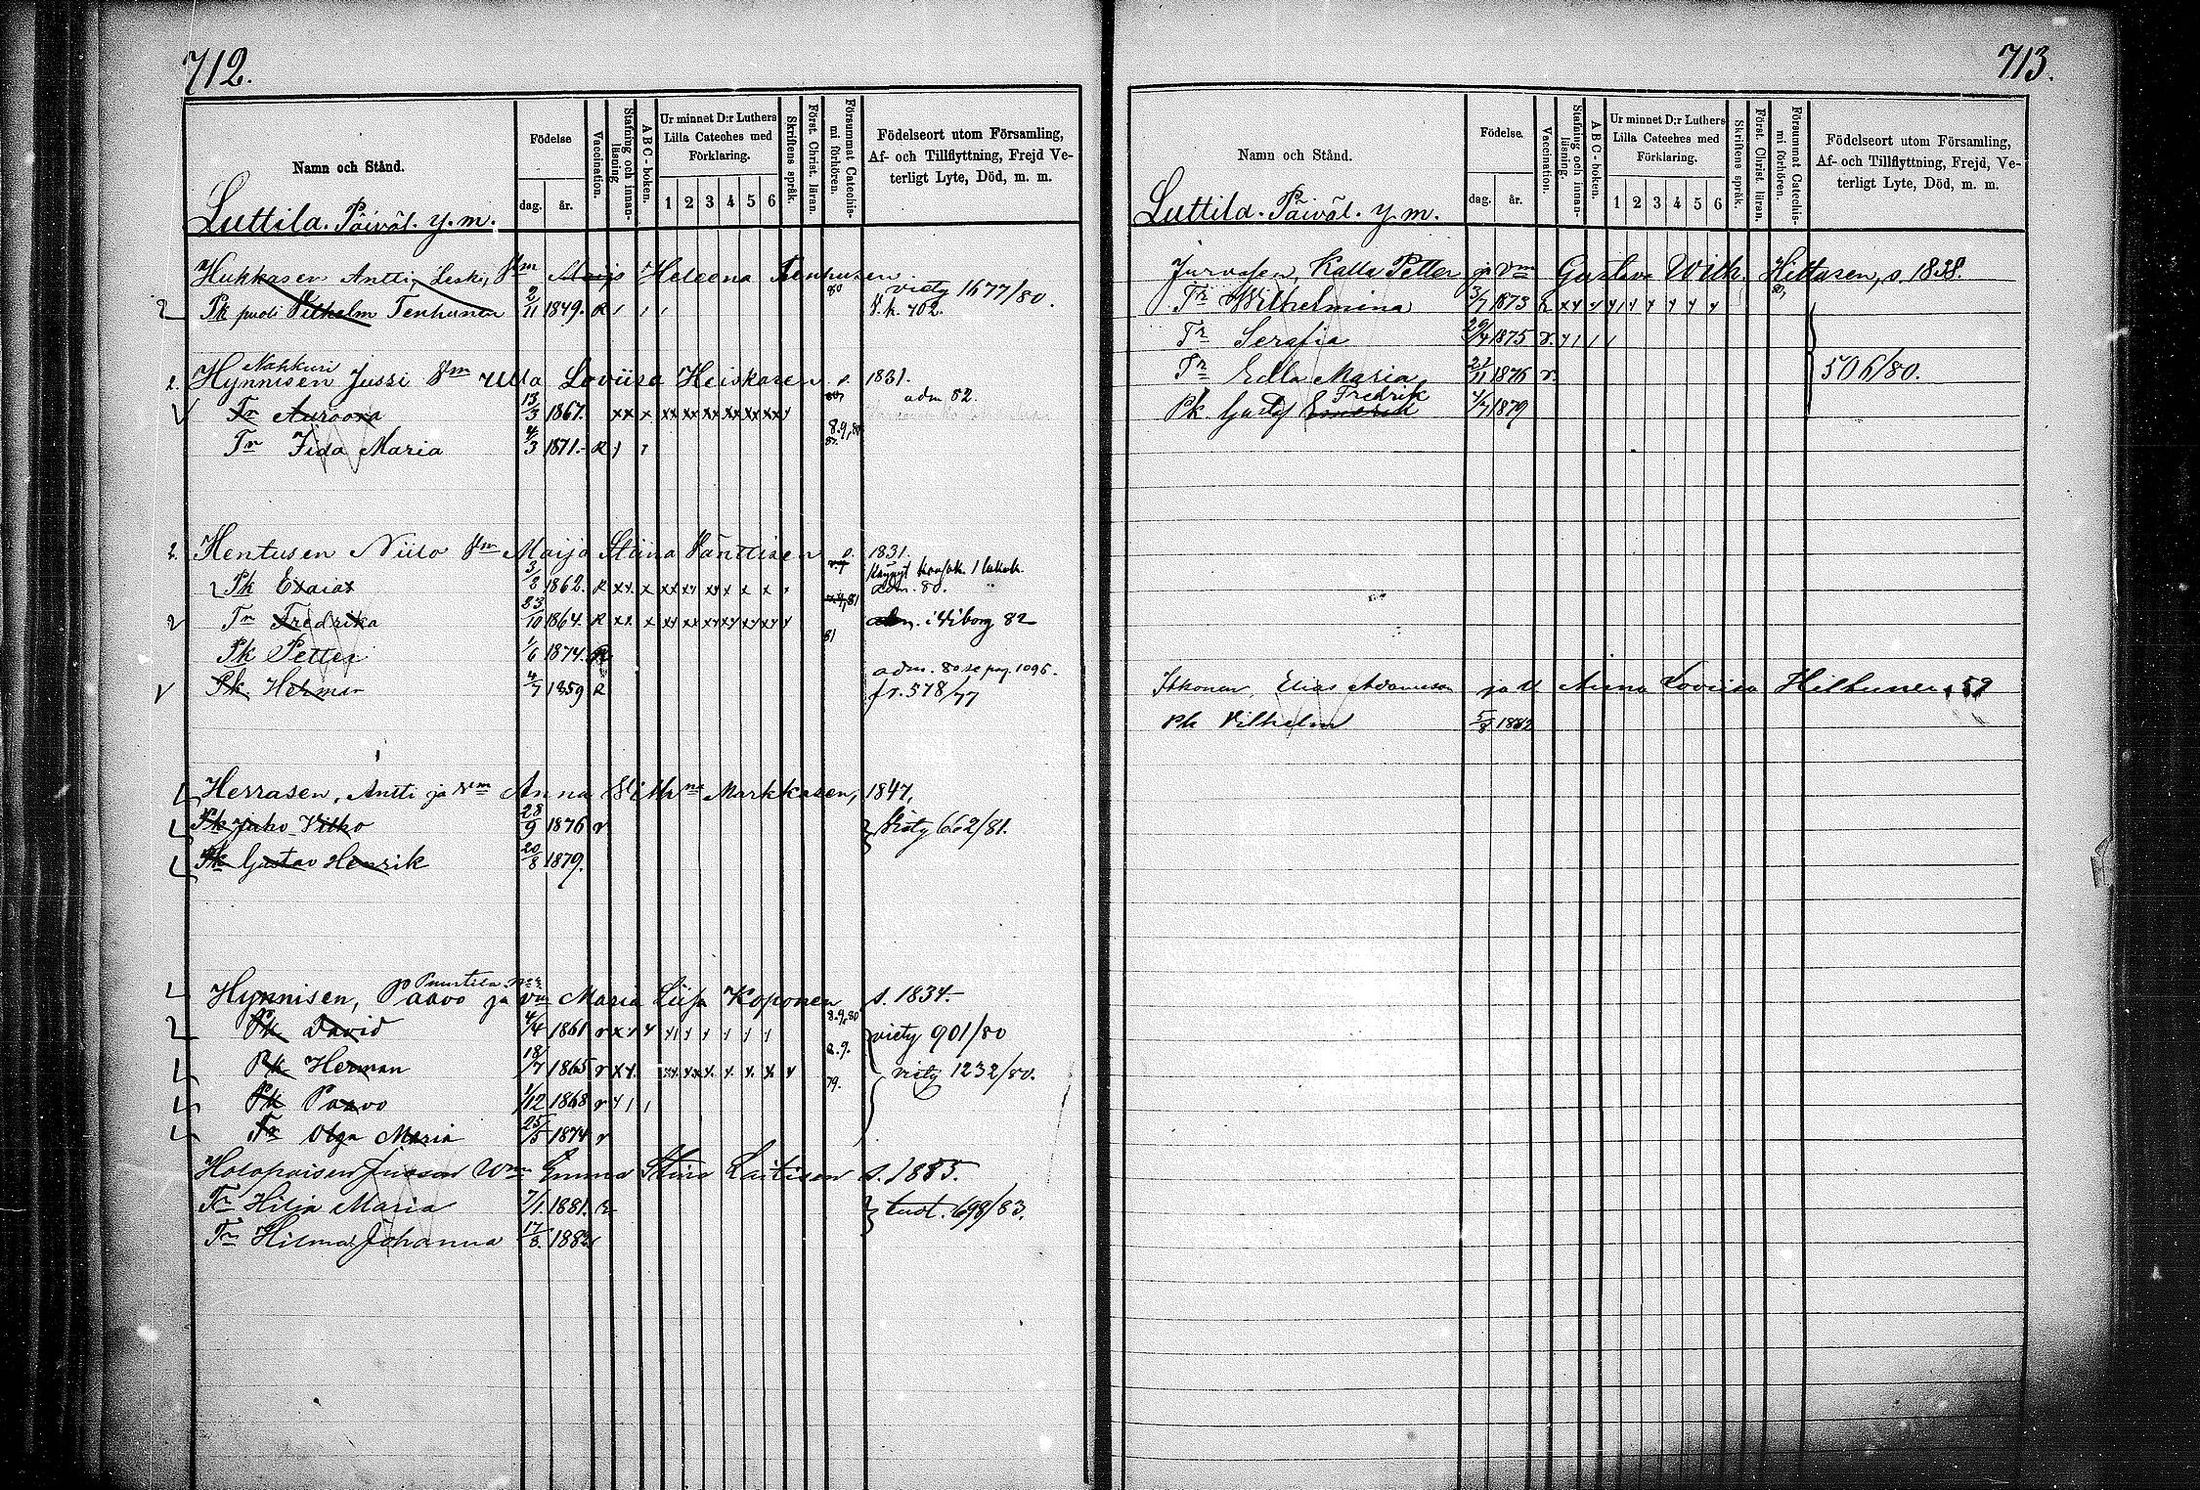 712.
Namn och Stånd.
Födelse
dag. år.
Vaccination.
Stafning och innanläsning
ABC-boken.
Ur minnet D:r Luthers Lilla Cateches med Förklaring.
1 2 3 4 5 6
Skriftens språk.
Först. Christ. läran.
Försummat Catechismi förhören.
Födelseort utom Församling, Af- och Tillflyttning, Frejd Veterligt Lyte, Död, m. m.
Luttila. Päiväl. y. m.
Hukkasen Antti, Leski, Maija Heleena Tenhusen
Pk puoli Vilhelm Tenhunen 2/11 1849. R 80 viety 1677/80.
V. k. 702.
Nahkuri
Hynnisen Jussi Vm Ulla Loviisa Heiskasen s. 1831.
Tr Auroora 13/3 1867. xx x xx xx xx xx xx xx adm 82.
Tr Fida Maria 4/3 1871. R 8.9,80
Hentusen Niilo Vm Maija Stiina Vänttisen s. 1831.
Pk Esaias 3/3 1862. R xx. x xx xx xx x x adm. 80.
Tr Fredrika 23/10 1864. R xx x adm. i Wiborg 82
Pk Petter 1/6 1874. R 81
Pk. Herman 4/7 1859 R adm. 80 se pag. 1095.
fr. 578/77
Herrasen, Antti ja Vm Anna Wilh:na Markkasen, 1847.
Pk Juho Vilho 28/9 1876 v Viety 662/81.
Pk Gustav Henrik 20/8 1879.
Puustila
Hynnisen, Paavo ja Vm Maria Liisa Koponen s. 1834.
Pk David 4/4 1861 v 8.9,80 viety 901/80
Pk Herman 18/7 1865 v xx. 8.9. viety 1232/80.
Pk Paavo 1/12 1868 v 79.
Tr Olga Maria 25/5 1874 v
Holopaisen Jussan Wm Emma Stina Laitisen s. 1885.
Tr Hilja Maria 7/1 1881. tust. 698/83.
Tr Hilma Johanna 17/8. 1882
713.
Namn och Stånd.
Födelse.
dag. år.
Vaccination.
Stafning och innanläsning.
ABC-boken.
Ur minnet D:r Luthers Lilla Cateches med Förklaring.
1 2 3 4 5 6
Skriftens språk.
Först. Christ. läran.
Försummat Catechismi förhören.
Födelseort utom Församling, Af- och Tillflyttning, Frejd, Veterligt Lyte, Död, m. m.
Luttila. Päiväl. y. m.
Jurvasen, Kalle Petter ja Vm Gustava Wilh. Hiltusen, s. 1838.
Tr Wilhelmina 3/7 1873 80,
Tr Serafia 29/4 1875 v.
Tr Edla Maria 21/11 1876 v. 506/80.
Fredrik
Pk. Gustaf 4/7 1879
Itkonen, Elias Adamsson ja V. Anna Loviisa Hiltunen, 59
Pk Vilhelm 5/8 1882